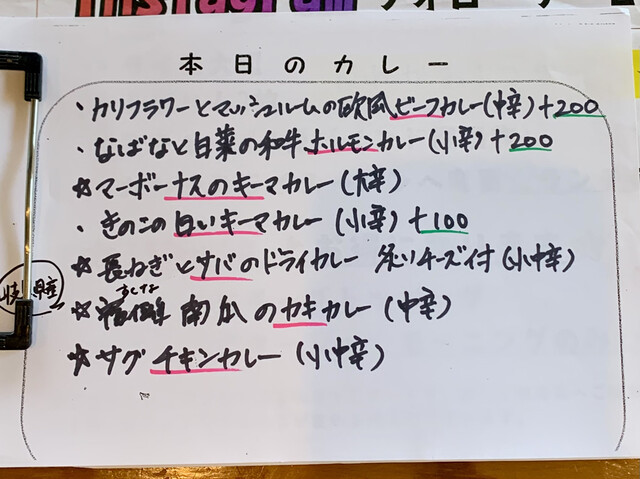 Instagram フォロー
本日のカレー
・カリフラワーとマッシュルームの欧風ビーフカレー(中辛)+200
・なばなと白菜の和牛ホルモンカレー(小辛)+200
☆マーボーナスのキーマカレー(大辛)
・きのこの白いキーマカレー(小辛)+100
☆長ねぎとサバのドライカレー 炙りチーズ付(小中辛)
県産
☆ 南瓜のカキカレー(中辛)
☆サグチキンカレー(小中辛)